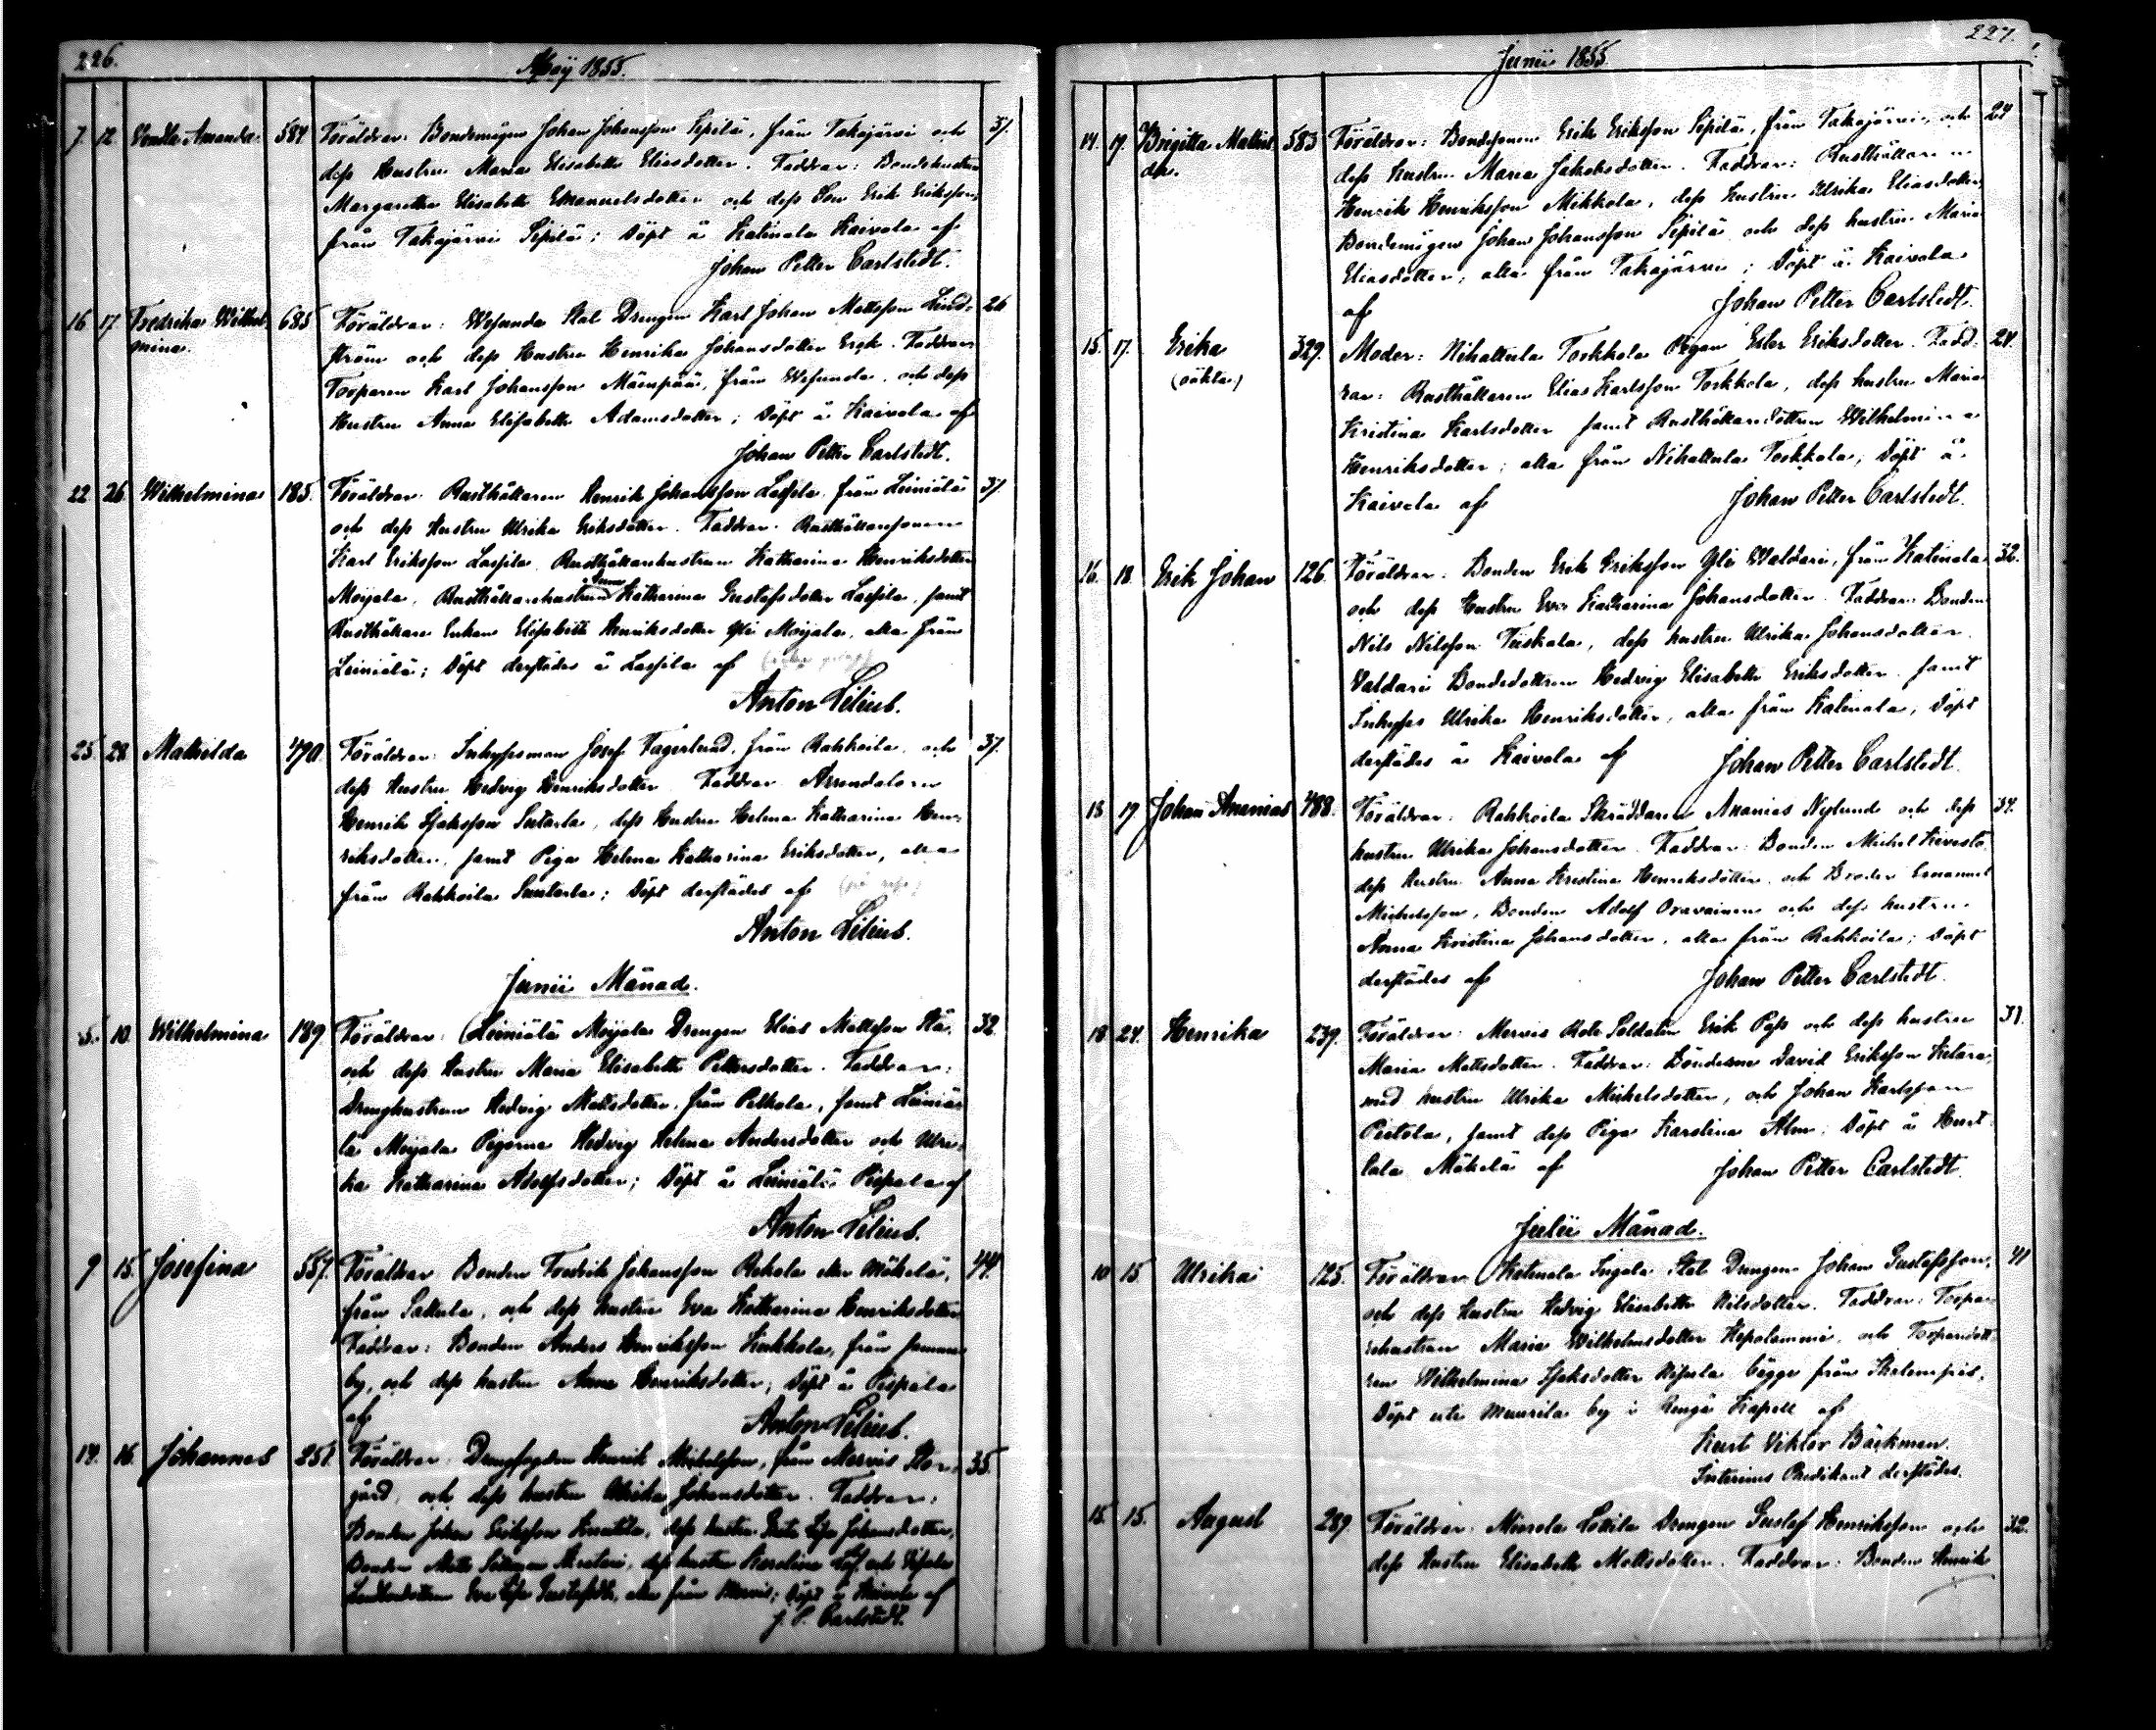 226.
Maij 1855.
7. 12. Vendla Amanda. 584 Föräldrar: Bondemågen Johan Johansson Sipilä, från Takajärvi och 31.
dess Hustru Maria Elisabeth Eliasdotter. Faddrar: Bondehustru
Margaretha Elisabeth Emanuelsdotter och dess Son Erik Eriksson,
från Takajärvi Sipilä; Döpt å Katinala Kaivola af
Johan Petter Carlstedt.
16 17 Fredrika Wilhel- 685 Föräldrar: Wesunda Stat Drengen Karl Johan Mattsson Lind- 26
mina. ström och dess Hustru Henrika Johansdotter Erck. Faddrar
Torparen Karl Johansson Mäenpää, från Wesunda, och dess
Hustru Anna Elisabeth Adamsdotter; Döpt å Kaivola af
Johan Petter Carlstedt.
22 26. Wilhelmina 185. Föräldrar. Rusthållaren Henrik Johansson Lassila, från Leiniälä 37.
och dess Hustru Ulrika Eriksdotter. Faddrar. Rusthållaresonen
Karl Eriksson Lassila, Rusthållarehustrun Katharina Henriksdotter
Moijala, Rusthållarehustrun Anna Katharina Gustafsdotter Lassila, samt
Rusthållare Enkan Elisabeth Henriksdotter Yli Moijala, alla från
Leiniälä; Döpt derstädes å Lassila af
Anton Lilius.
25. 28. Mathilda 470. Föräldrar: Inhysesman Josef Fagerlund, från Rahkoila, och 37.
dess Hustru Hedvig Henriksdotter. Faddrar Arrendatorn
Henrik Isaksson Suutarla, dess Hustru Helena Katharina Hen-
riksdotter, samt Piga Helena Katharina Eriksdotter, alla
från Rahkoila Suutarla; Döpt derstädes af
Anton Lilius.
Junii Månad.
5. 10. Wilhelmina 189. Föräldrar: Leiniälä Moijala Drengen Elias Mattsson 32.
och dess Hustru Maria Elisabeth Pettersdotter. Faddrar:
Drenghustrun Hedvig Mattsdotter, från Pelkola, samt Leiniä-
lä Moijala Pigorna Hedvig Helena Andersdotter och Ulri-
ka Katharina Adolfsdotter; Döpt å Leiniälä Pispala af
Anton Lilius.
9 15. Josefina 557. Föräldrar Bonden Fredrik Johansson Rekola eller Mäkelä, 44.
från Sattula, och dess hustru Eva Katharina Henriksdotter
Faddrar: Bonden Anders Henriksson Kukkola, från samma
by, och dess hustru Anna Henriksdotter; Döpt å Pispala
af Anton Lilius.
14. 16. Johannes 251. Föräldrar: Drengfogden Henrik Michelsson, från Mervis Stor- 35.
gård, och dess hustru Ulrika Johansdotter. Faddrar:
Bonden Johan Eriksson Knuttila, dess hustru Greta Lisa Johansdotter,
Bonden Matts dess hustru Karolina och
Eva Lisa alla från Mervis; Döpt å Kaivola af
J. P. Carlstedt.
227.
Junii 1855.
14. 19. Brigitta Mathil- 583 Föräldrar: Bondesonen Erik Eriksson Sipilä, från Takajärvi, och 24
da. dess hustru Maria Jakobsdotter. Faddrar: Rusthållaren
Henrik Henriksson Mikkola, dess hustru Ulrika Eliasdotter,
Bondemågen Johan Johansson Sipilä och dess hustru Maria
Eliasdotter, alla från Takajärvi; Döpt å Kaivola
af Johan Petter Carlstedt.
15. 17. Erika 329. Moder: Nihattula Torkkola Pigan Ester Eriksdotter. Fadd- 24.
(oäkta) rar: Rusthållaren Elias Karlsson Torkkola, dess hustru Maria
Kristina Karlsdotter samt Rusthållaredottren Wilhelmina
Henriksdotter, alla från Nihattula Torkkola; Döpt å
Kaivola af Johan Petter Carlstedt.
16. 18. Erik Johan 126. Föräldrar: Bonden Erik Eriksson Yli Waldari, från Katinala 32.
och dess Hustru Eva Katharina Johansdotter. Faddrar: Bonden
Nils Nilsson Tuskala, dess hustru Ulrika Johansdotter
Valdari Bondedottren Hedvig Elisabeth Eriksdotter samt
Inhyses Ulrika Henriksdotter, alla från Katinala, Döpt
derstädes å Kaivola af Johan Petter Carlstedt.
13. 17. Johan Ananias 488. Föräldrar: Rahkoila Skräddaren Ananias Nylund och dess 34.
hustru Ulrika Johansdotter. Faddrar: Bonden Michel Kivistö
dess hustru Anna Kristina Henriksdotter, och Broder Emanuel
Michelsson, Bonden Adolf Oravainen och dess hustru
Anna Kristina Johansdotter, alla från Rahkoila; Döpt
derstädes af Johan Petter Carlstedt.
18. 24. Henrika 239. Föräldrar: Mervis Rote Soldaten Erik Pass och dess hustru 31.
Maria Mattsdotter. Faddrar: Bönderne David Eriksson Ketara,
med hustru Ulrika Michelsdotter, och Johan Karlsson
Pietola, samt dess Piga Karolina Alm. Döpt å Hurt-
tala Mäkelä af Johan Petter Carlstedt.
Julii Månad.
10 15. Ulrika 125. Föräldrar: Katinala Ingala Stat Drengen Johan Gustafsson, 41
och dess Hustru Hedvig Elisabeth Nilsdotter. Faddrar: Torpa-
rehustrun Maria Wilhelmsdotter Hepolammi, och Torparedott-
ren Wilhelmina Isaksdotter begge från
Döpt uti Muurila by i Rengo Kapell af
Knut Viktor Bäckman.
Interims Predikant derstädes.
15. 15. August 289. Föräldrar: Miemola Lottila Drengen Gustaf Henriksson och 32.
dess Hustru Elisabeth Mattsdotter. Faddrar: Bonden Henrik